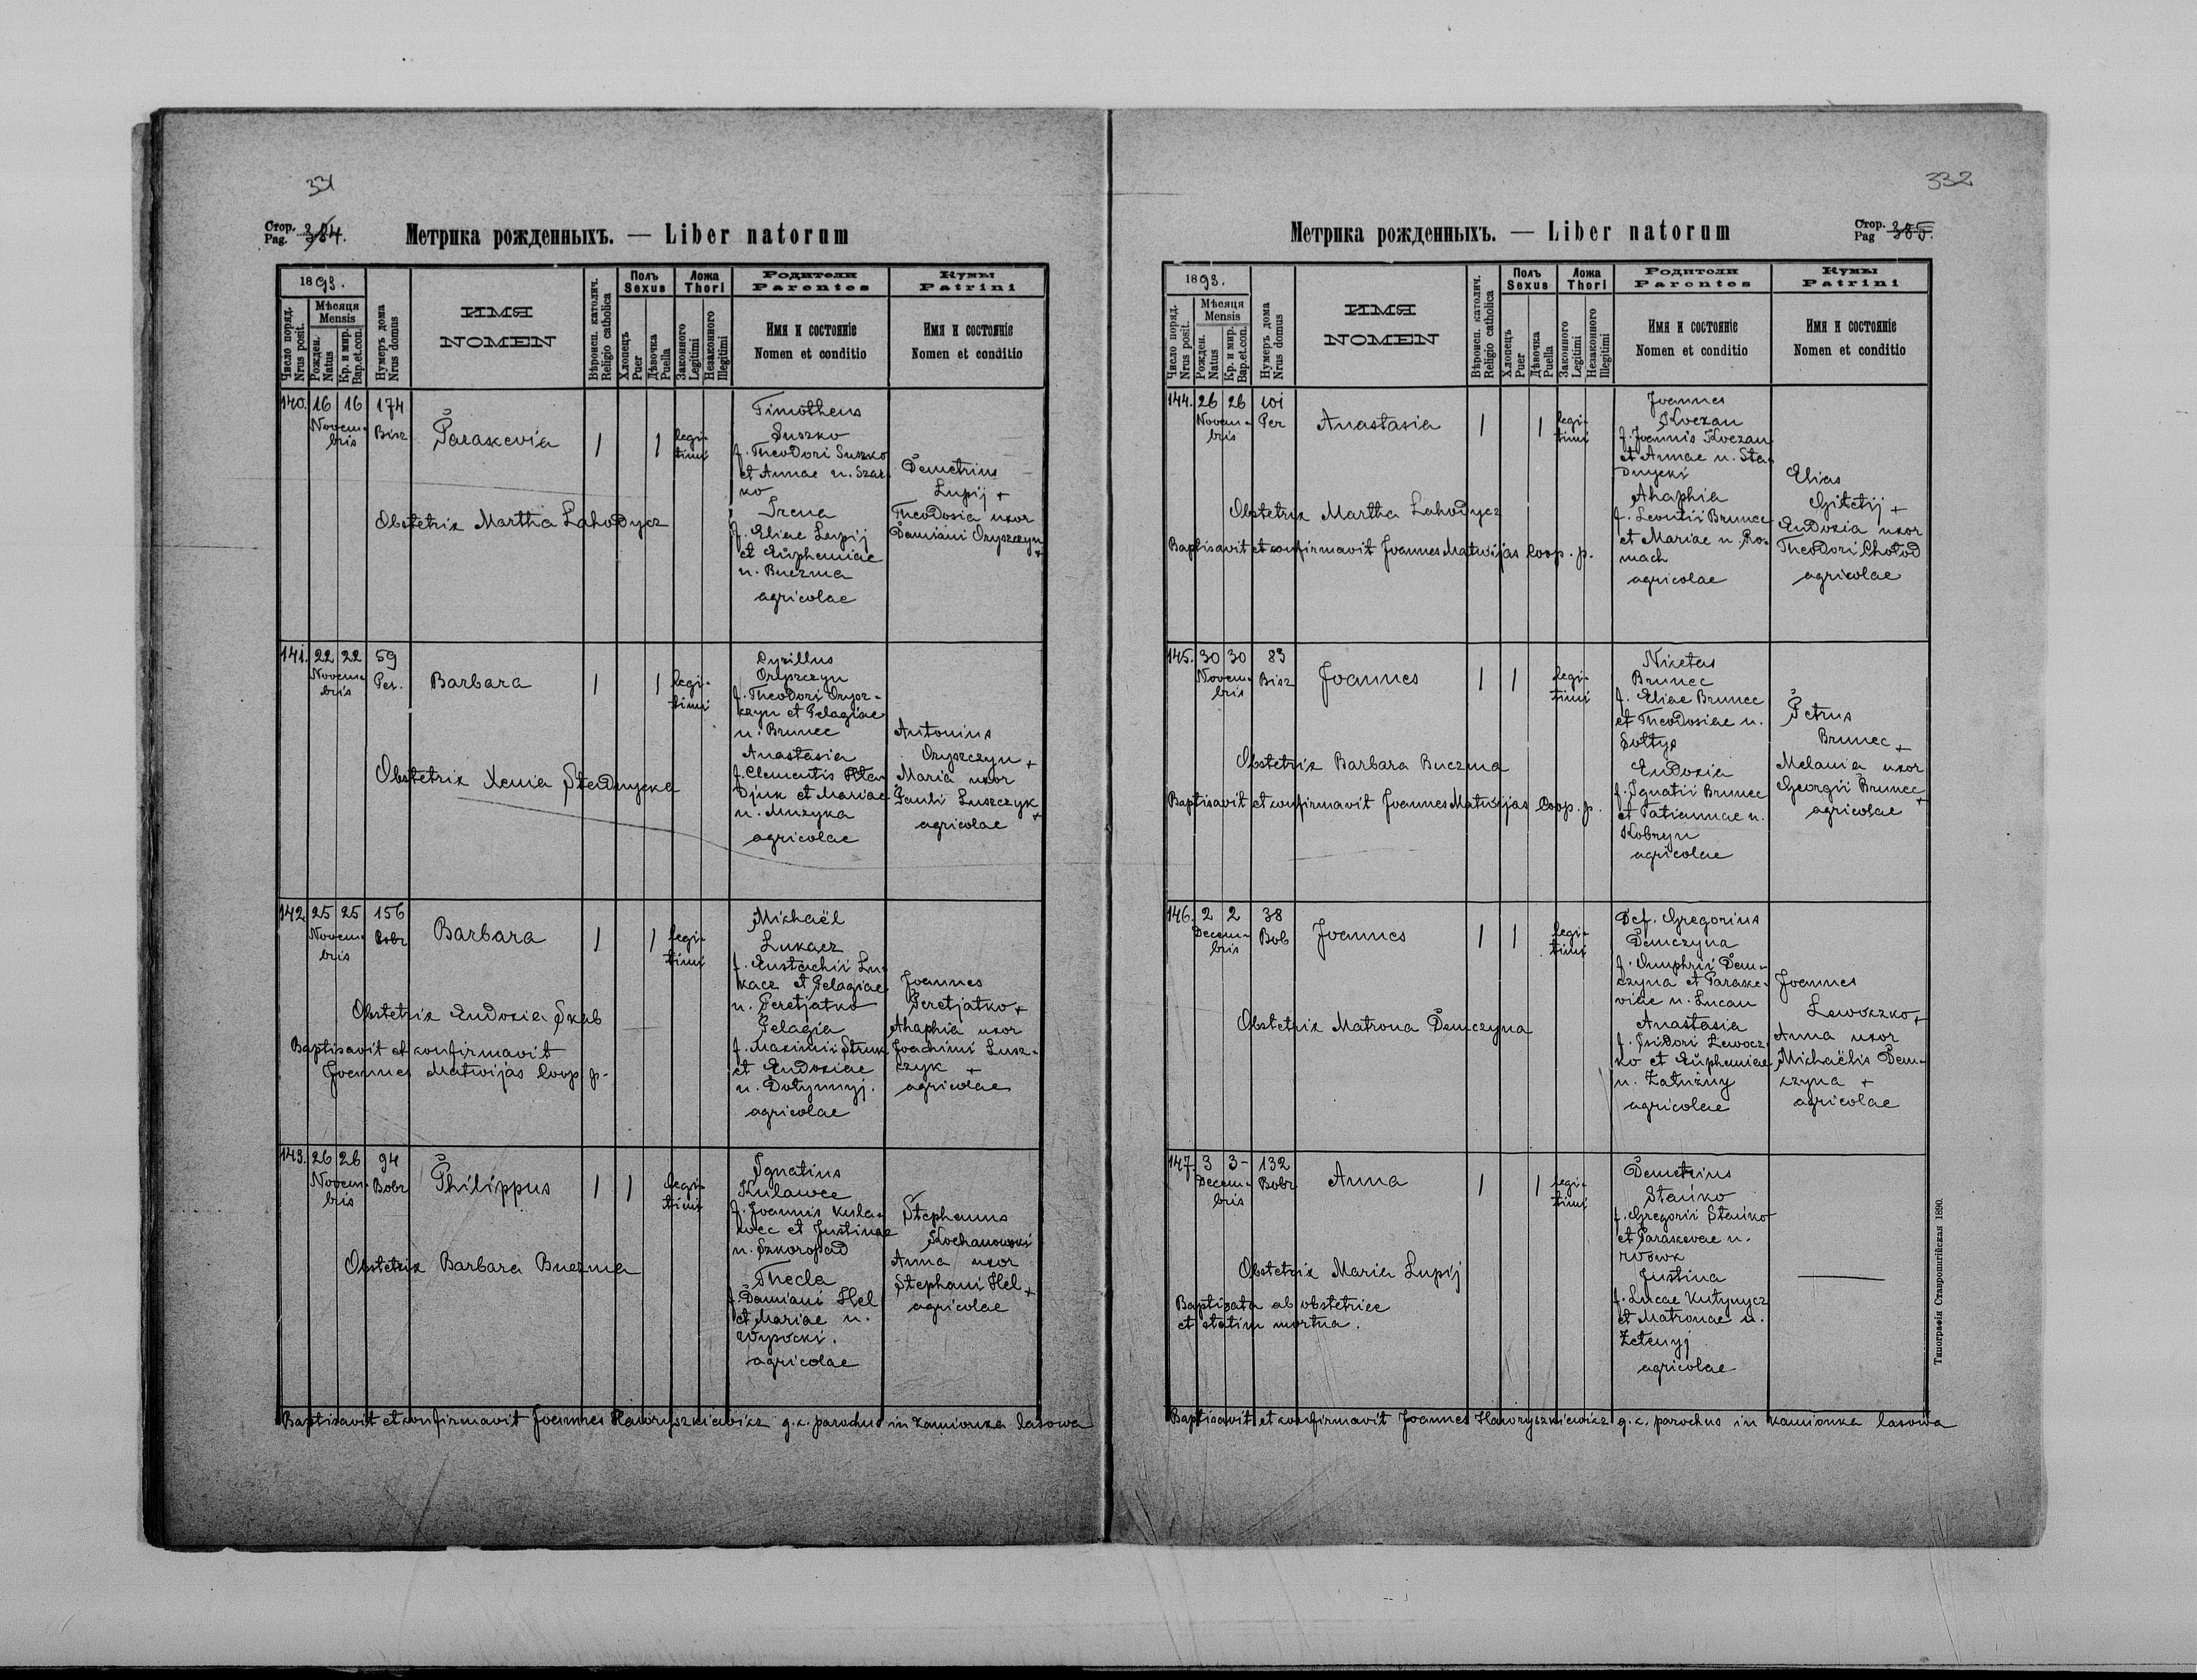 331
Стор.
Pag. 384.
Метрика рожденныхъ. — Liber natorum
1893.
Число поряд.
Nrus posit.
Мѣсяця
Mensis
Рожден.
Natus
Кр. и мир.
Bap.et.con.
Нумеръ дома
Nrus domus
ИМЯ
NOMEN
Вѣроисп. католич.
Religio catholica
Полъ
Sexus
Хлопецъ
Puer
Дѣвочка
Puella
Ложа
Thori
Законного
Legitimi
Незаконного
Illegitimi
Родители
Parentes
Имя и состоянie
Nomen et conditio
Кумы
Patrini
Имя и состоянie
Nomen et conditio
140. 16 16 174
Novem-
bris
Bisz
Paraskevia
1 1 legi-
timi
Timotheus
Suszko
f. Theodori Suszko
et Annae n. Szar-
ko
Irena
f. Eliae Lupij
et Euphemiae
n. Buczma
agricolae
Demetrius
Lupij +
Theodosia uxor
Damiani Oryszczyn
+
Obstetrix Martha Lahodycz
141. 22 22 59
Novem-
bris
Per.
Barbara
1 1 legi-
timi
Cyrillus
Oryszczyn
f. Theodori Orysz-
czyn et Pelagiae
n. Brunec
Anastasia
f. Clementis
djuk et Mariae
n. Muzyka
agricolae
Antonius
Oryszczyn +
Maria uxor
Pauli Luszczyk
+
agricolae
Obstetrix Xenia Stadnycka
142 25 25 156
Novem-
bris
Bobr
Barbara
1 1 legi-
timi
Michaël
Lukacz
f. Eustachii Lu-
kacz et Pelagiae
n. Peretjatko
Pelagia
f. Maximi Struk
et Eudoxiae
n. Dotynnyj.
agricolae
Joannes
Peretjatko +
Ahaphia uxor
Joachimi Lusz-
czyk +
agricolae
Obstetrix Eudoxia Skab
Baptisavit et confirmavit
Joannes Matwijas Coop. p.
143. 26 26 94
Novem-
bris
Bobr
Philippus
1 1 legi-
timi
Ignatius
Kulawec
f. Joannis Kula-
wec et Justinae
n. Szkoropad
Thecla
f. Damiani Hel
et Mariae n.
Wysocki.
agricolae
Stephanus
Kochanowski
Anna uxor
Stephani Hel +
agricolae
Obstetrix Barbara Buczma
Baptisavit et confirmavit Joannes Hawryszkiewicz g. c. parochus in Kamionka lasowa
332
Метрика рожденныхъ. — Liber natorum
Стор.
Pag 385.
1893.
Число поряд.
Nrus posit.
Мѣсяця
Mensis
Рожден.
Natus
Кр. и мир.
Bap.et.con.
Нумеръ дома
Nrus domus
ИМЯ
NOMEN
Вѣроисп. католич.
Religio catholica
Полъ
Sexus
Хлопецъ
Puer
Дѣвочка
Puella
Ложа
Thori
Законного
Legitimi
Незаконного
Illegitimi
Родители
Parentes
Имя и состоянie
Nomen et conditio
Кумы
Patrini
Имя и состоянie
Nomen et conditio
144. 26 26 101
Novem-
bris
Per
Anastasia
1 1 legi-
timi
Joannes
Koczan
f. Joannis Koczan
et Annae n. Sta-
dnycki
Ahaphia
f. Leontii Brunec
et Mariae n. Ro-
mach
agricolae
Elias
+
Eudoxia uxor
Theodori Chołod
agricolae
Obstetrix Martha Lahodycz
Baptisavit et confirmavit Joannes Matwijas Coop. p.
145. 30 30 83
Novem-
bris
Bisz
Joannes
1 1 legi-
timi
Nicetas
Brunec
f. Eliae Brunec
et Theodosiae n.
Sołtys
Eudoxia
f. Ignatii Brunec
et Tatiannae n.
Kobryn
agricolae
Petrus
Brunec +
Melania uxor
Georgii Brunec
+
agricolae
Obstetrix Barbara Buczma
Baptisavit et confirmavit Joannes Matwijas Coop. p.
146. 2 2 38
Decem-
bris
Bob
Joannes
1 1 legi-
timi
Def. Gregorius
Demczyna
f. Onuphrii Dem-
czyna et Paraske-
viae n. Lucan
Anastasia
f. Isidori Lewocz-
ko et Euphemiae
n. Załużny
agricolae
Joannes
Lewoczko +
Anna uxor
Michaëlis Dem-
czyna +
agricolae
Obstetrix Matrona Demczyna
147. 3 3- 132
Decem-
bris
Bobr
Anna
1 1 legi-
timi
Demetrius
Stańko
f. Gregorii Stańko
et Paraskevae n.
Justina
f. Lucae Kutynycz
et Matronae n.
Zełenyj
agricolae
Obstetrix Maria Lupij
Baptizata ab obstetrice
et statim mortua.
Baptisavit et confirmavit Joannes Hawryszkiewicz g. c. parochus in Kamionka lasowa
Типографія Ставропигійская 1890.